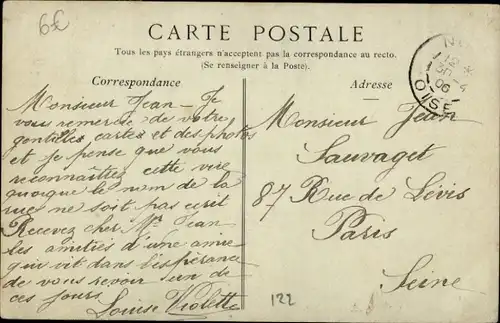 6€
CARTE POSTALE
Tous les pays étrangers n'acceptent pas la correspondance au recto.
(Se renseigner à la Poste).
Correspondance
Monsieur Jean - Je
vous remercie de votre
gentilles cartes et des photos
et je pense que vous
reconnaîtres cette vue
quoique le nom de la
rue ne soit pas ecrit
Recevez cher Mr Jean
les amitiés d'une amie
qui vit dans l'espérance
de vous revoir un de
ces jours
Louise Violette
Adresse
Monsieur Jean
Sauvaget
87 Rue de Lévis
Paris
Seine
12
06
OISE
122